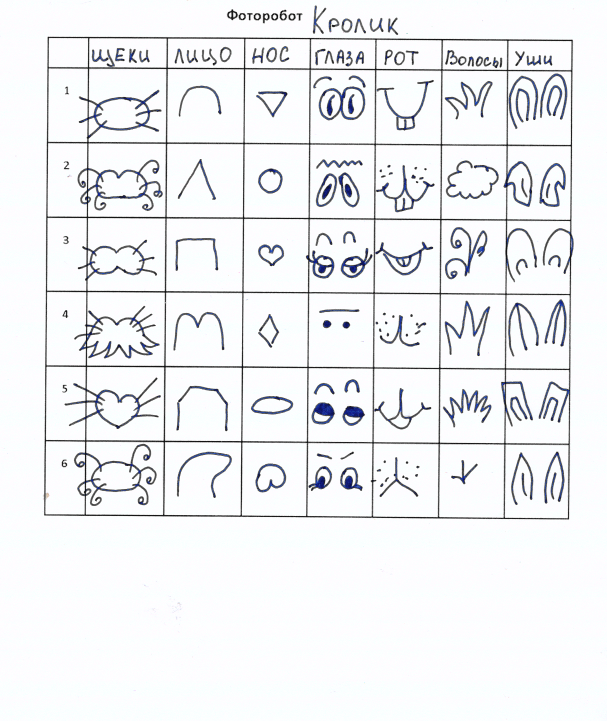 Фоторобот Кролик
Щеки Лицо Нос Глаза Рот Волосы Уши
1
2
3
4
5
6